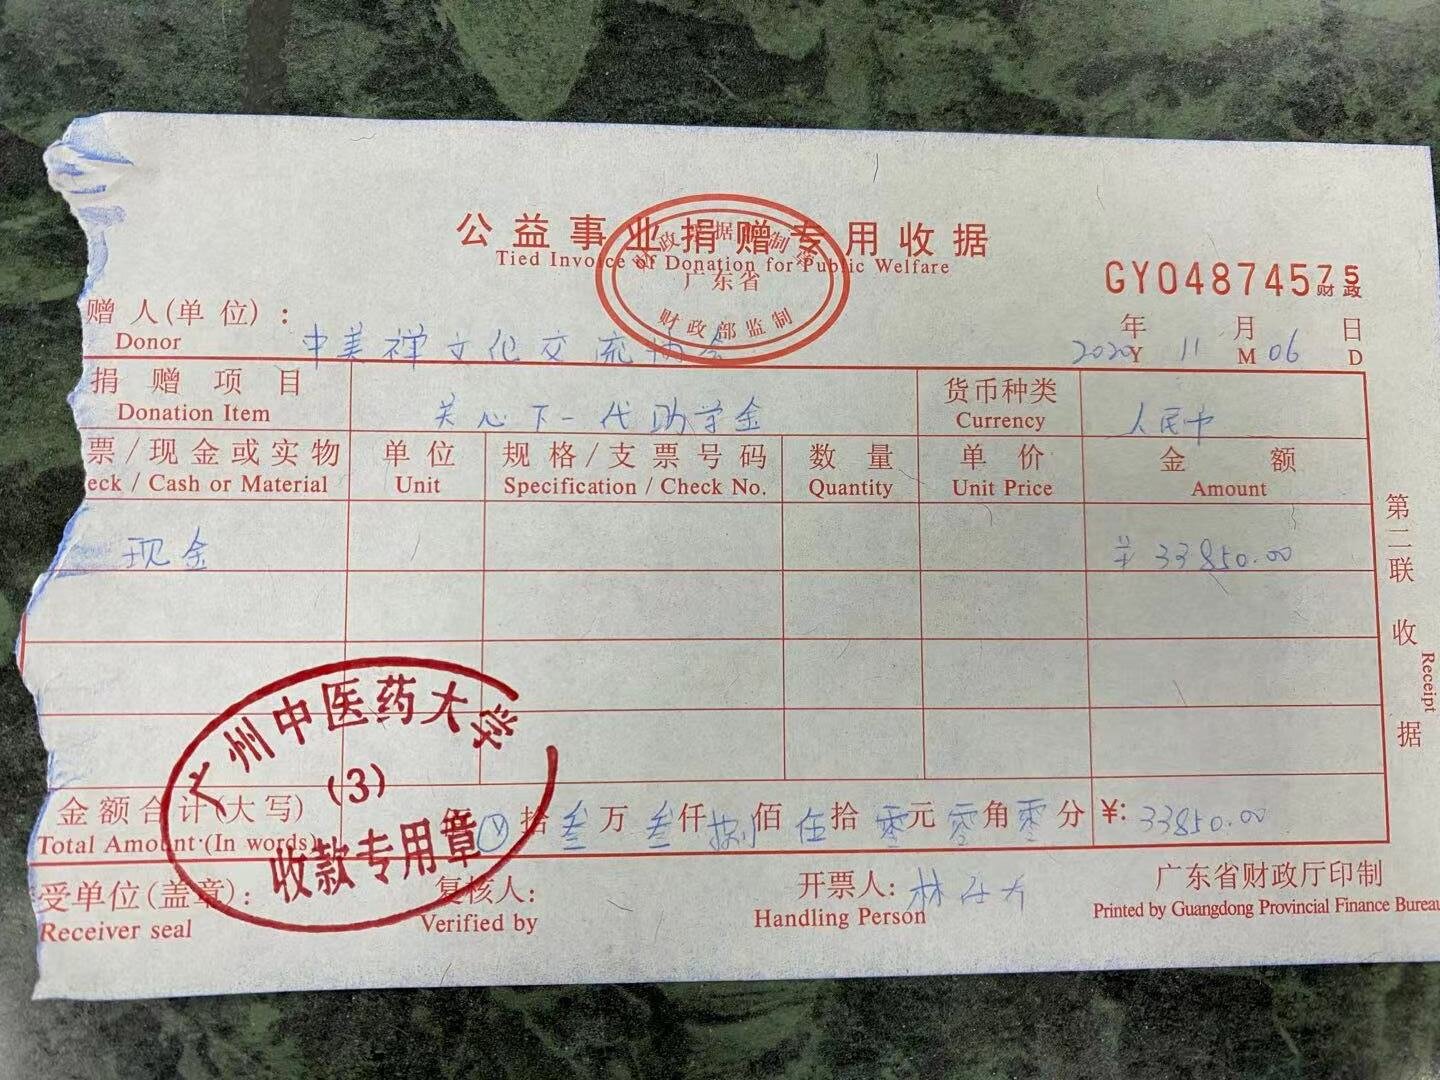 公益事业捐赠专用收据
Tied Invoice of Donation for Public Welfare
财政票据监制
广东省
财政部监制
GY04874575
财政
赠人(单位)：
Donor
中美禅文化交流协会
年 月 日
2020 Y 11 M 06 D
捐赠项目
Donation Item
关心下一代助学金
货币种类
Currency
人民币
票/现金或实物
eck / Cash or Material
单位
Unit
规格/支票号码
Specification / Check No.
数量
Quantity
单价
Unit Price
金额
Amount
现金
¥ 33850.00
金额合计(大写)
Total Amount (In words)
拾叁万叁仟捌佰伍拾零元零角零分
¥: 33850.00
受单位(盖章):
Receiver seal
复核人:
Verified by
开票人:
Handling Person
林
广东省财政厅印制
Printed by Guangdong Provincial Finance Bureau
第二联 收据
Receipt
广州中医药大学
(3)
收款专用章